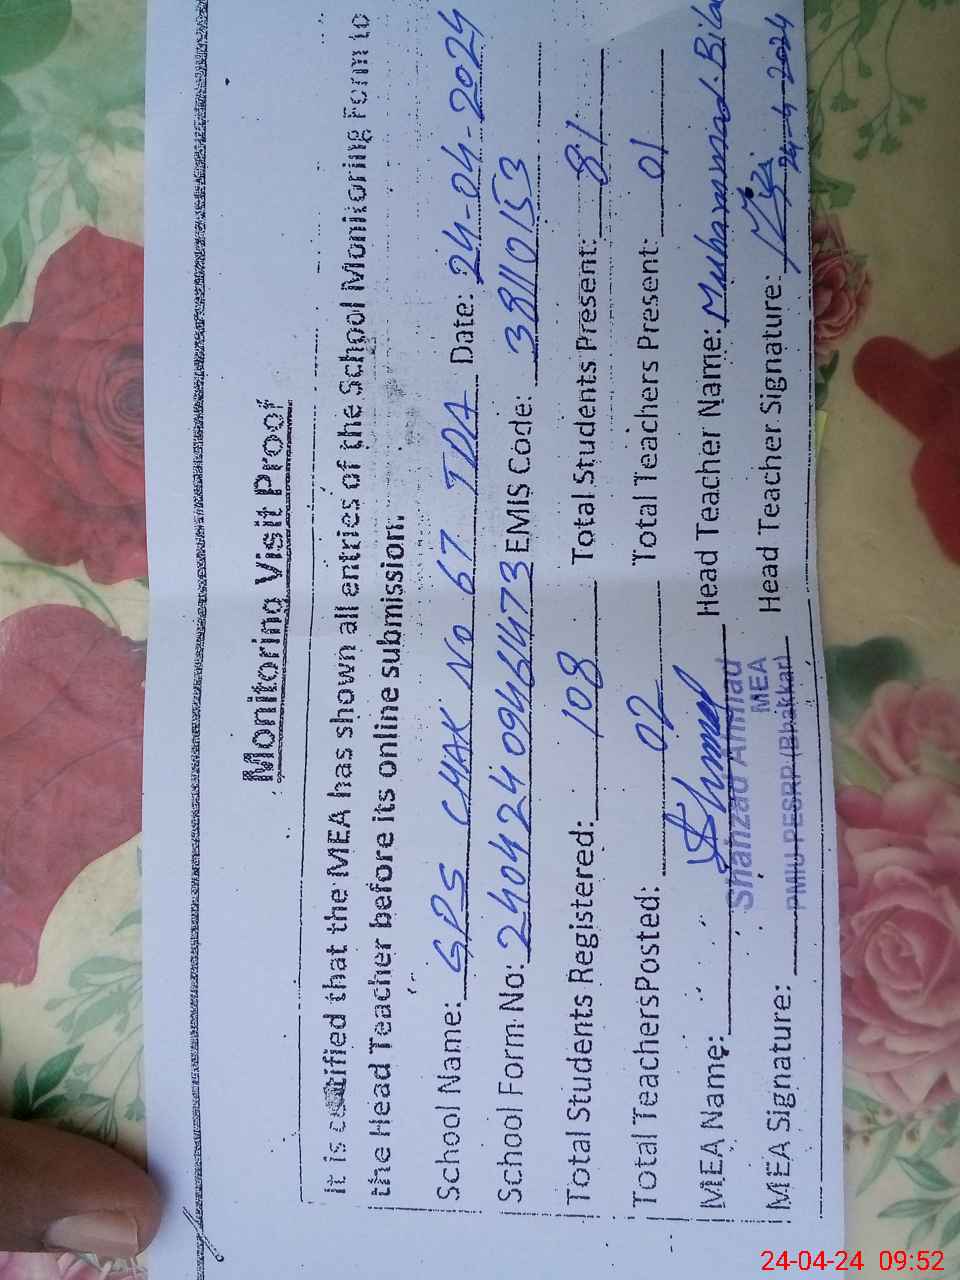 Monitoring Visit Proof
It is certified that the MEA has shown all entries of the School Monitoring Form to
the Head Teacher before its online submission.
School Name: GPS CHAK No 67 TDA Date: 24-04-2024
School Form No: 240424094614473 EMIS Code: 38110153
Total Students Registered: 108 Total Students Present: 81
Total TeachersPosted: 02 Total Teachers Present: 01
MEA Name: Head Teacher Name: Muhammad Bilal
Shahzad Ahmad
MEA
PMIU-PESRP (Bhakkar)
MEA Signature: Head Teacher Signature: 24-4-2024
24-04-24 09:52